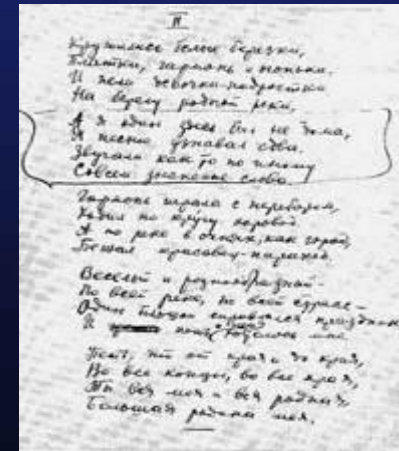 II
Кружились белые березки,
Платки, гармонь и огоньки.
И пели девочки-подростки
На берегу родной реки.
А я один здесь был не дома,
Я песню узнавал едва.
Звучали как то по иному
Совсем знакомые слова.
Гармонь играла с перебором,
Ходил по кругу хоровод
А по реке в огнях, как город,
Бежал красавец-пароход.
Веселый и разнообразный
По всей реке, по всей стране
Один большой справлялся праздник
И
Поет, он от края и до края,
Во все концы, во все края,
Ты вся моя и вся родная,
Большая родина моя.